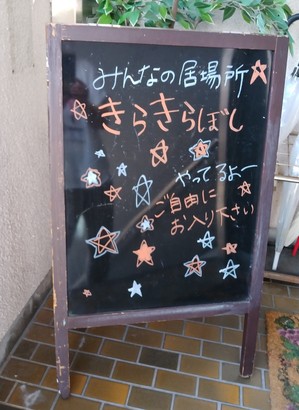 みんなの居場所
きらきらぼし
やってるよー
ご自由に
お入り下さい